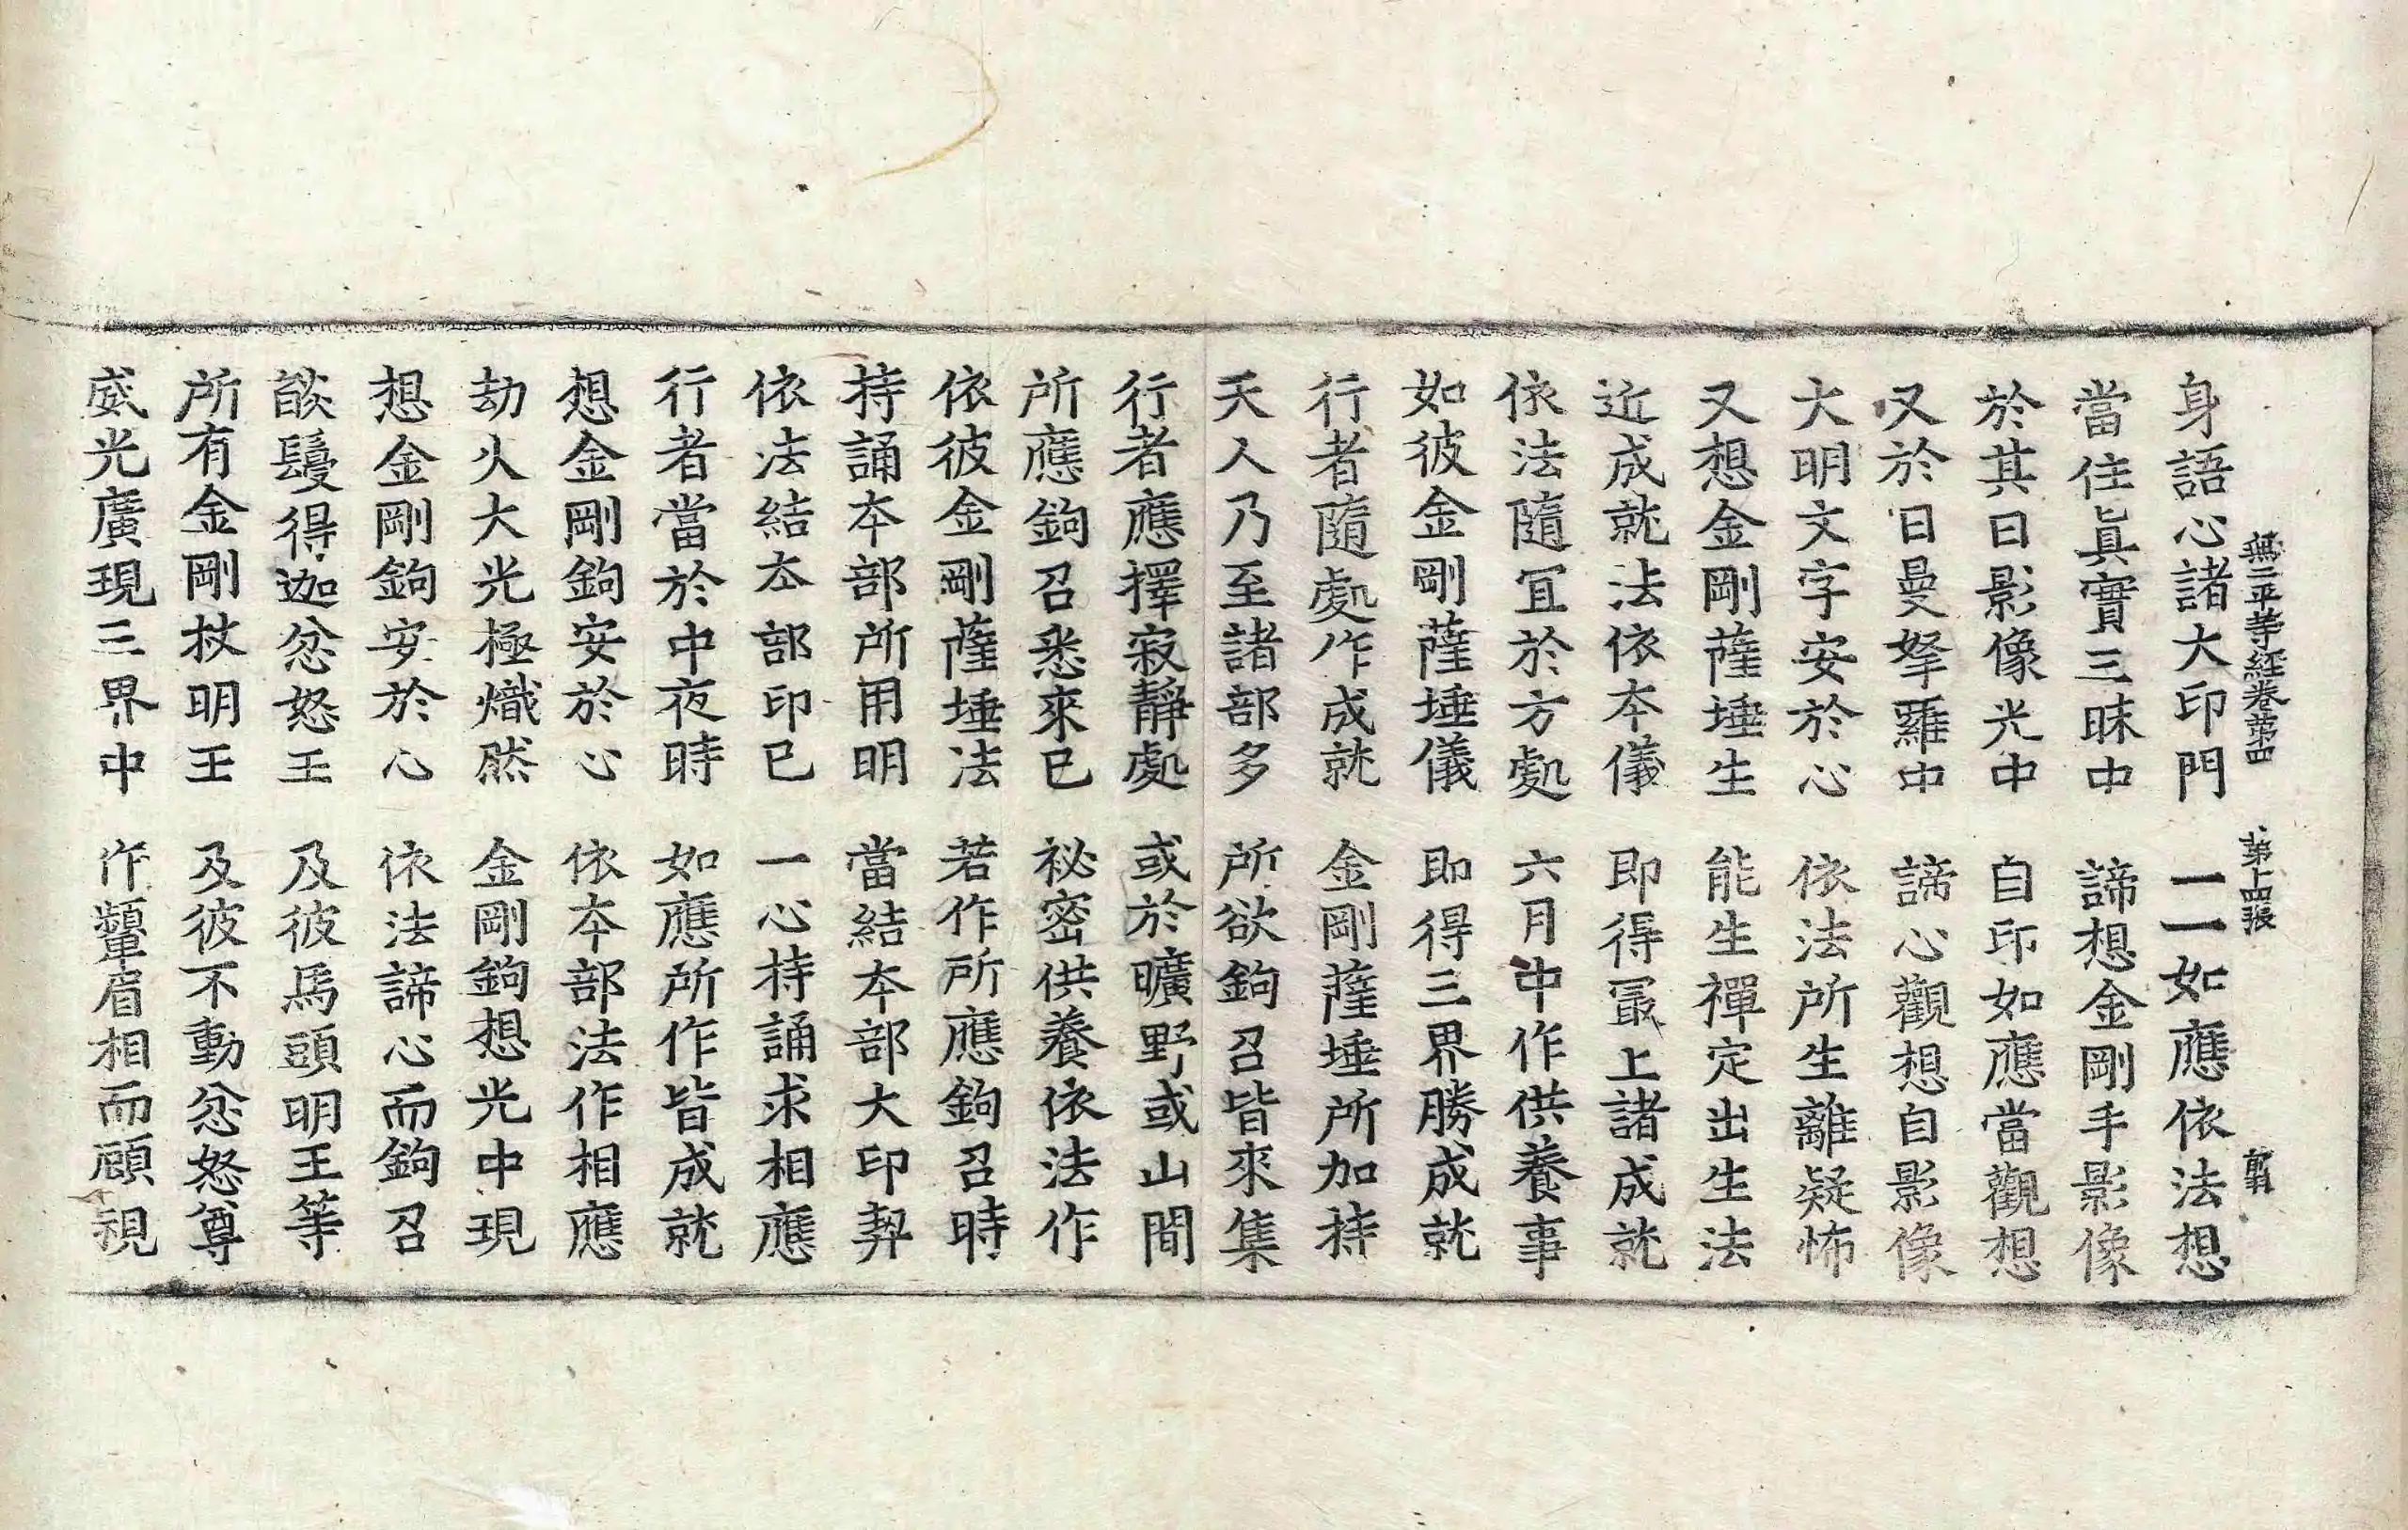 無二平等經卷第四　第十四張　䩭
身語心諸大印門　一一如應依法想
當住眞實三昧中　諦想金剛手影像
於其日影像光中　自印如應當觀想
又於日曼拏羅中　諦心觀想自影像
大明文字安於心　依法所生離疑怖
又想金剛薩埵生　能生禪定出生法
近成就法依本儀　即得冣上諸成就
依法隨冝於方處　六月中作供養事
如彼金剛薩埵儀　即得三界勝成就
行者隨處作成就　金剛薩埵所加持
天人乃至諸部多　所欲鉤召皆來集
行者應擇寂靜處　或於曠野或山間
所應鉤召悉來已　祕密供養依法作
依彼金剛薩埵法　若作所應鉤召時
持誦本部所用明　當結本部大印契
依法結本部印已　一心持誦求相應
行者當於中夜時　如應所作皆成就
想金剛鉤安於心　依本部法作相應
劫火大光極熾然　金剛鉤想光中現
想金剛鉤安於心　依法諦心而鉤召
燄鬘得迦忿怒王　及彼馬頭明王等
所有金剛杖明王　及彼不動忿怒尊
威光廣現三界中　作顰眉相而顧視